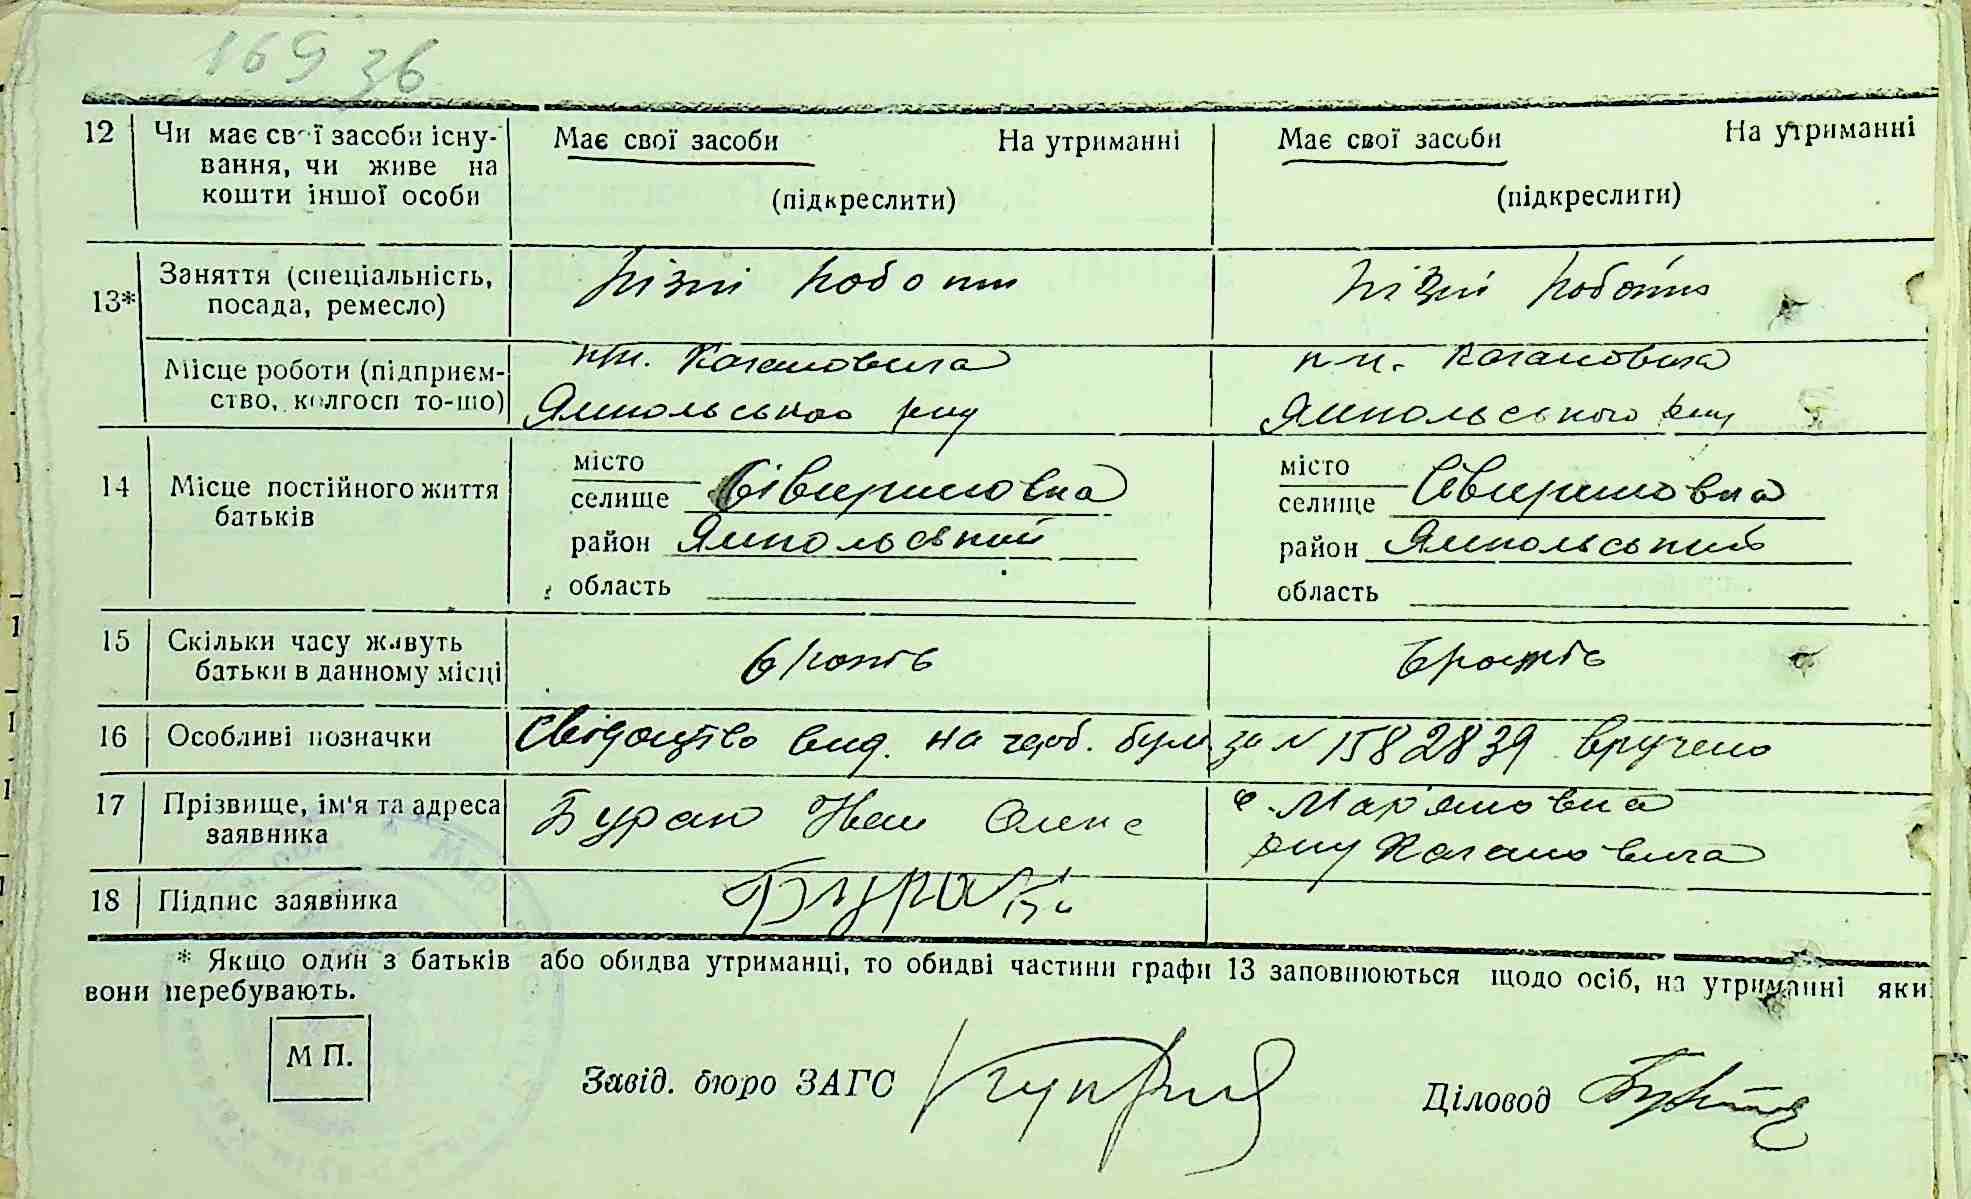 169 36
12 Чи має свої засоби існу- Має свої засоби На утриманні Має свої засоби На утриманні
вання, чи живе на
кошти іншої особи (підкреслити) (підкреслити)
13* Заняття (спеціальність, різні роботи різні роботи
посада, ремесло)
Місце роботи (підприєм- Кагановича Кагановича
ство, колгосп то-що) Ямпольського р-ну Ямпольського р-ну
14 Місце постійного життя місто місто
батьків селище Сівериновка селище Сівериновка
район Ямпольський район Ямпольський
область область
15 Скільки часу живуть 6 років 6 років
батьки в данному місці
16 Особливі позначки Свідоцтво вид. на герб. бум за № 1582839 вручено
17 Прізвище, ім'я та адреса Бурак Иван с. Мар'яновка
заявника р-ну Кагановича
18 Підпис заявника Бурак
* Якщо один з батьків або обидва утриманці, то обидві частини графи 13 заповнюються щодо осіб, на утриманні яки
вони перебувають.
М П.
Завід. бюро ЗАГС Діловод